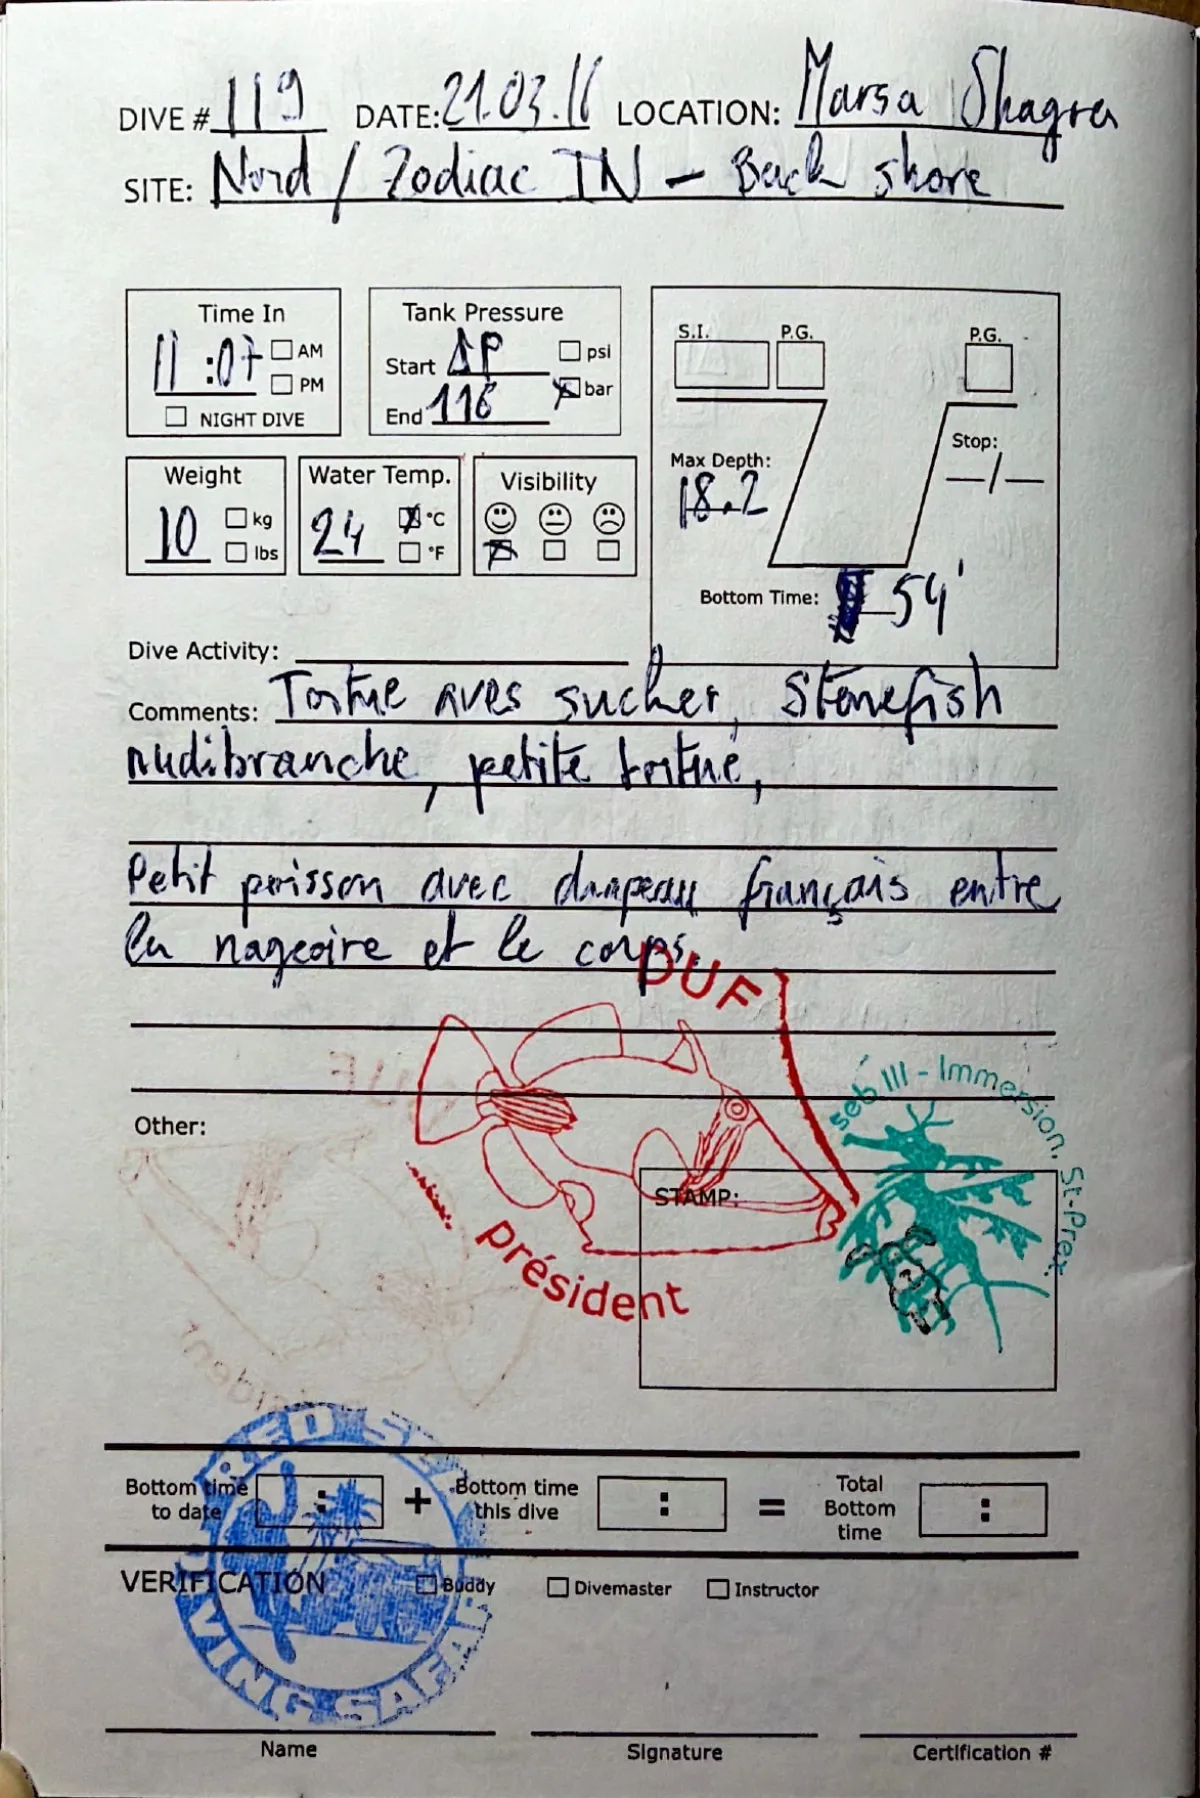 DIVE # 119 DATE: 21.03.16 LOCATION: Marsa Shagra
SITE: Nord / Zodiac IN - Back shore
Time In
11:07 AM
PM
NIGHT DIVE
Tank Pressure
Start ΔP psi
End 116 bar
S.I. P.G. P.G.
Max Depth:
18.2
Stop:
-/-
Bottom Time: 54'
Weight
10 kg
lbs
Water Temp.
24 °C
°F
Visibility
Dive Activity:
Comments: Tortue aves sucher, Stonefish
nudibranche, petite tortue,
Petit poisson avec drapeau français entre
la nageoire et le corps.
DUF
président
seb III - Immersion, St-Prex.
Other:
STAMP:
RED SEA
DIVING SAFARI
Bottom time to date : + Bottom time this dive : = Total Bottom time :
VERIFICATION Buddy Divemaster Instructor
Name Signature Certification #